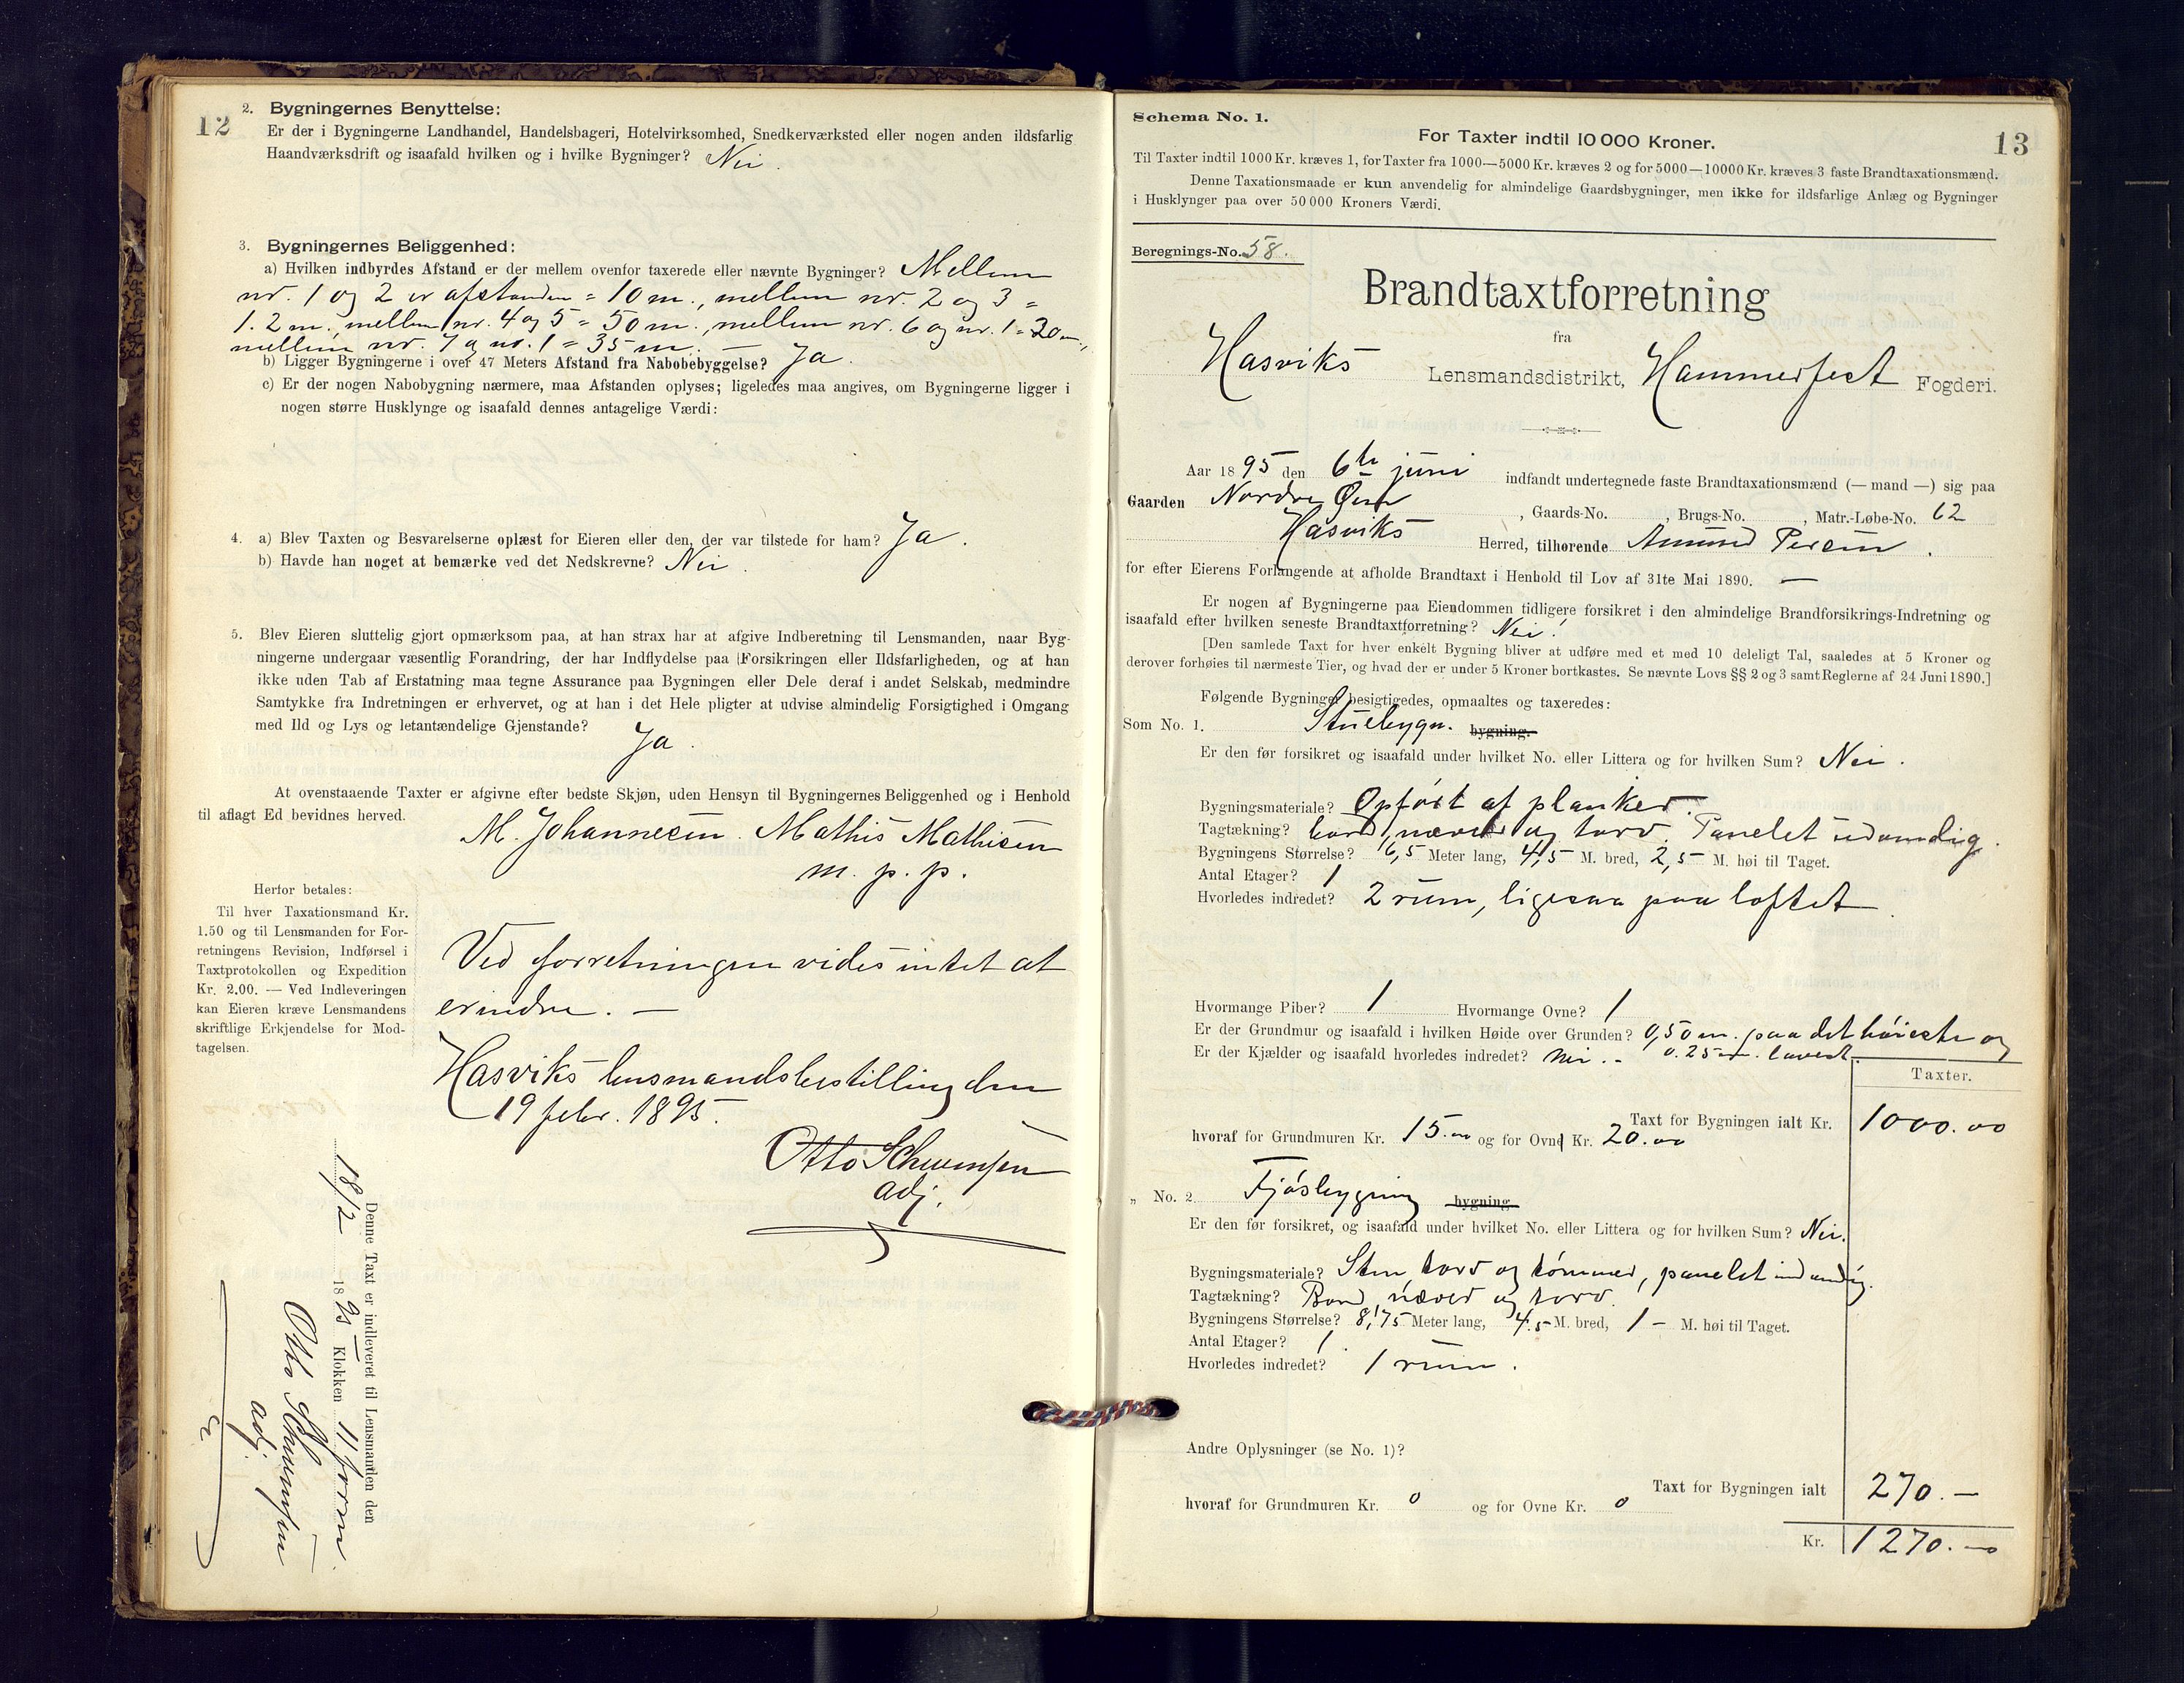 12
2. Bygningernes Benyttelse:
Er der i Bygningerne Landhandel, Handelsbageri, Hotelvirksomhed, Snedkerværksted eller nogen anden ildsfarlig
Haandværksdrift og isaafald hvilken og i hvilke Bygninger? Nei.
3. Bygningernes Beliggenhed:
a) Hvilken indbyrdes Afstand er der mellem ovenfor taxerede eller nævnte Bygninger? Mellem
nr. 1 og 2 er afstanden = 10 m., mellem nr. 2 og 3 =
1.2 m., mellem nr. 4 og 5 = 50 m., mellem nr. 6 og nr. 1 = 20 m.,
mellem nr. 7 og nr. 1 = 35 m. —
b) Ligger Bygningerne i over 47 Meters Afstand fra Nabobebyggelse? Ja.
c) Er der nogen Nabobygning nærmere, maa Afstanden oplyses; ligeledes maa angives, om Bygningerne ligger i
nogen større Husklynge og isaafald dennes antagelige Værdi:
4. a) Blev Taxten og Besvarelserne oplæst for Eieren eller den, der var tilstede for ham? Ja.
b) Havde han noget at bemærke ved det Nedskrevne? Nei.
5. Blev Eieren sluttelig gjort opmærksom paa, at han strax har at afgive Indberetning til Lensmanden, naar Byg-
ningerne undergaar væsentlig Forandring, der har Indflydelse paa Forsikringen eller Ildsfarligheden, og at han
ikke uden Tab af Erstatning maa tegne Assurance paa Bygningen eller Dele deraf i andet Selskab, medmindre
Samtykke fra Indretningen er erhvervet, og at han i det Hele pligter at udvise almindelig Forsigtighed i Omgang
med Ild og Lys og letantændelige Gjenstande? Ja.
At ovenstaaende Taxter er afgivne efter bedste Skjøn, uden Hensyn til Bygningernes Beliggenhed og i Henhold
til aflagt Ed bevidnes herved.
M. Johannesen. Mathis Mathisen
m. p. p.
Herfor betales:
Til hver Taxationsmand Kr.
1.50 og til Lensmanden for For-
retningens Revision, Indførsel i
Taxtprotokollen og Expedition
Kr. 2.00. — Ved Indleveringen
kan Eieren kræve Lensmandens
skriftlige Erkjendelse for Mod-
tagelsen.
Ved forretningen vides intet at
erindre. —
Hasviks lensmandsbestilling den
19 febr. 1895.
Otto
adj.
Denne Taxt er indleveret til Lensmanden den
18/2 1895 Klokken 11 form.
Otto
adj.
13
Schema No. 1.
For Taxter indtil 10 000 Kroner.
Til Taxter indtil 1000 Kr. kræves 1, for Taxter fra 1000—5000 Kr. kræves 2 og for 5000—10000 Kr. kræves 3 faste Brandtaxationsmænd.
Denne Taxationsmaade er kun anvendelig for almindelige Gaardsbygninger, men ikke for ildsfarlige Anlæg og Bygninger
i Husklynger paa over 50 000 Kroners Værdi.
Beregnings-No. 58.
Brandtaxtforretning
fra
Hasviks Lensmandsdistrikt, Hammerfest Fogderi.
Aar 1895 den 6te juni indfandt undertegnede faste Brandtaxationsmænd (— mand —) sig paa
Gaarden Nordre , Gaards-No. , Brugs-No. , Matr.-Løbe-No. 62
Hasviks Herred, tilhørende Amund Persen.
for efter Eierens Forlangende at afholde Brandtaxt i Henhold til Lov af 31te Mai 1890. —
Er nogen af Bygningerne paa Eiendommen tidligere forsikret i den almindelige Brandforsikrings-Indretning og
isaafald efter hvilken seneste Brandtaxtforretning? Nei!
[Den samlede Taxt for hver enkelt Bygning bliver at udføre med et med 10 deleligt Tal, saaledes at 5 Kroner og
derover forhøies til nærmeste Tier, og hvad der er under 5 Kroner bortkastes. Se nævnte Lovs §§ 2 og 3 samt Reglerne af 24 Juni 1890.]
Følgende Bygninger besigtigedes, opmaaltes og taxeredes:
Som No. 1. Stuebygn. bygning.
Er den før forsikret og isaafald under hvilket No. eller Littera og for hvilken Sum? Nei.
Bygningsmateriale? Opført af planker.
Tagtækning? bord, næver og torv. Panelet udvendig.
Bygningens Størrelse? 6,5 Meter lang, 4,5 M. bred, 2,5 M. høi til Taget.
Antal Etager? 1
Hvorledes indredet? 2 rum, ligesaa paa loftet.
Hvormange Piber? 1 Hvormange Ovne? 1
Er der Grundmur og isaafald i hvilken Høide over Grunden? 0,50 m. paa det høieste og
Er der Kjælder og isaafald hvorledes indredet? nei. - 0.25 m. lavest.
Taxter.
Taxt for Bygningen ialt Kr. 1000.00
hvoraf for Grundmuren Kr. 15.00 og for Ovne Kr. 20.00
„ No. 2. Fjøsbygning bygning.
Er den før forsikret, og isaafald under hvilket No. eller Littera og for hvilken Sum? Nei.
Bygningsmateriale? Sten, torv og tømmer, panelet indvendig.
Tagtækning? Bord, næver og torv.
Bygningens Størrelse? 8,75 Meter lang, 4.5 M. bred, 1 — M. høi til Taget.
Antal Etager? 1.
Hvorledes indredet? 1 rum.
Andre Oplysninger (se No. 1)?
Taxt for Bygningen ialt 270. —
hvoraf for Grundmuren Kr. 0 og for Ovne Kr. 0
Kr. 1270. —